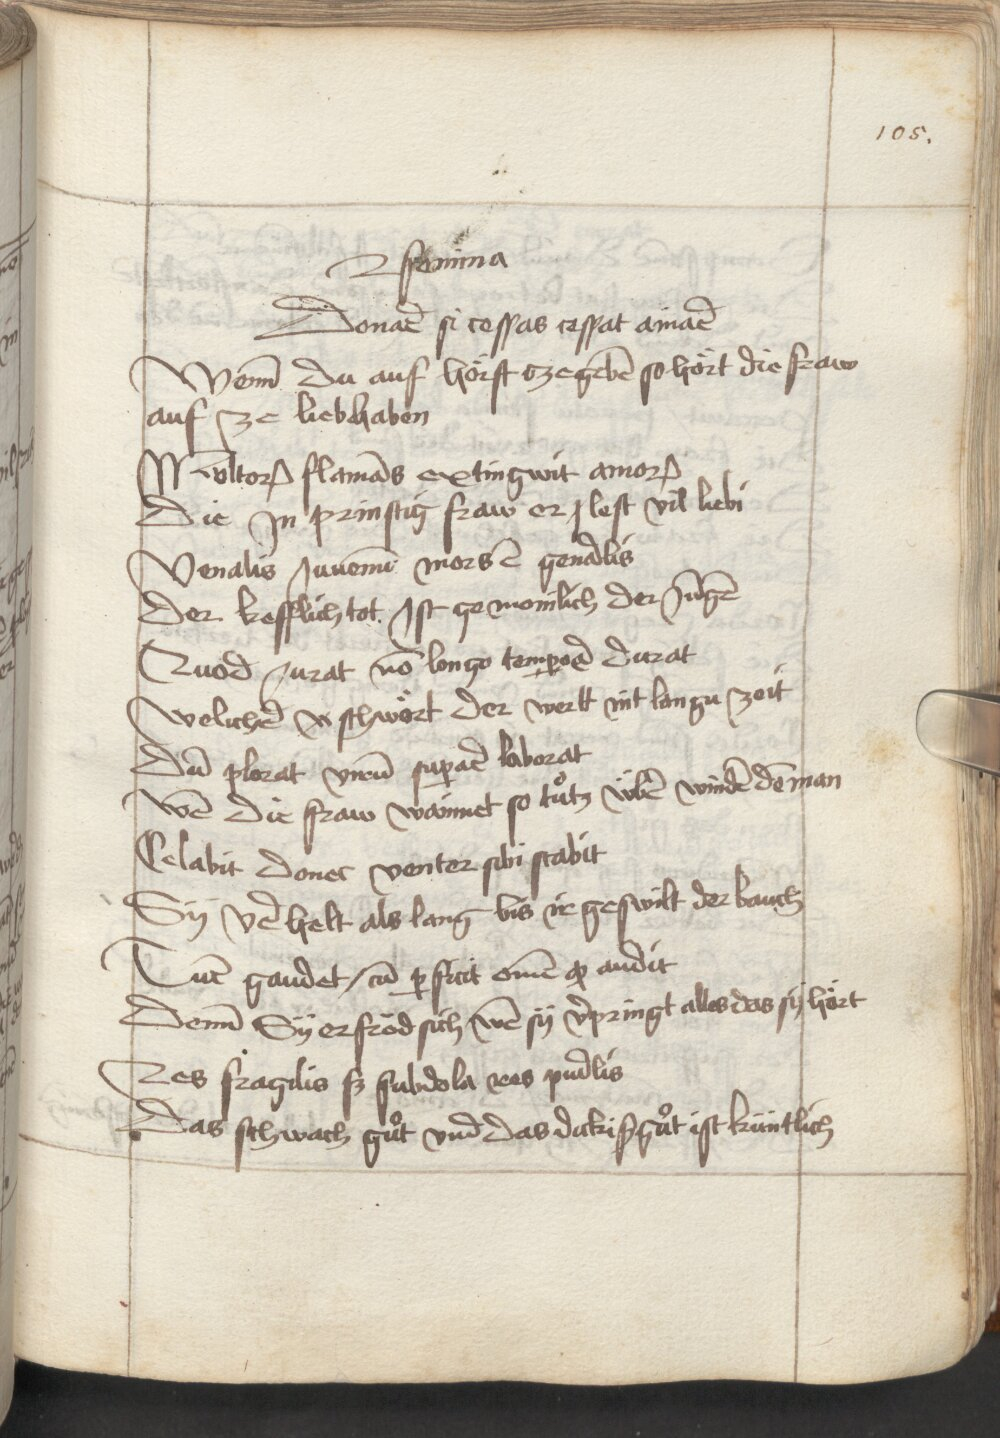 105.
Femina
Donare si cessas cessat amare
Wenn du auf hörst tzegebē so hört die fraw
auf ze liebhaben
Multorum flamās extingwit amorum
Die In prinstig fraw er lest vil liebi
Venalis Juuenū mors ē genalis
Der kefflich tot. Ist gemeinlich der Jungē
Quod Jurat nō longo tempore durat
welicher schwört der werlt nit langu zeit
Dū plorat virū superare laborat
wē die fraw wainnet so tůtz übē windē dē man
Celabit donec venter sibi stabit
Sy ver helt als lang bis ir geswilt der bauch
Tūc gaudet / cū perficit omē quod audit
Denn Sy erfröd sich wē sy verpringt alles das sy hört
Res fragilis sz subdola res puerlis
Das schwach gůt vnd das duckisch gůt ist küntlich